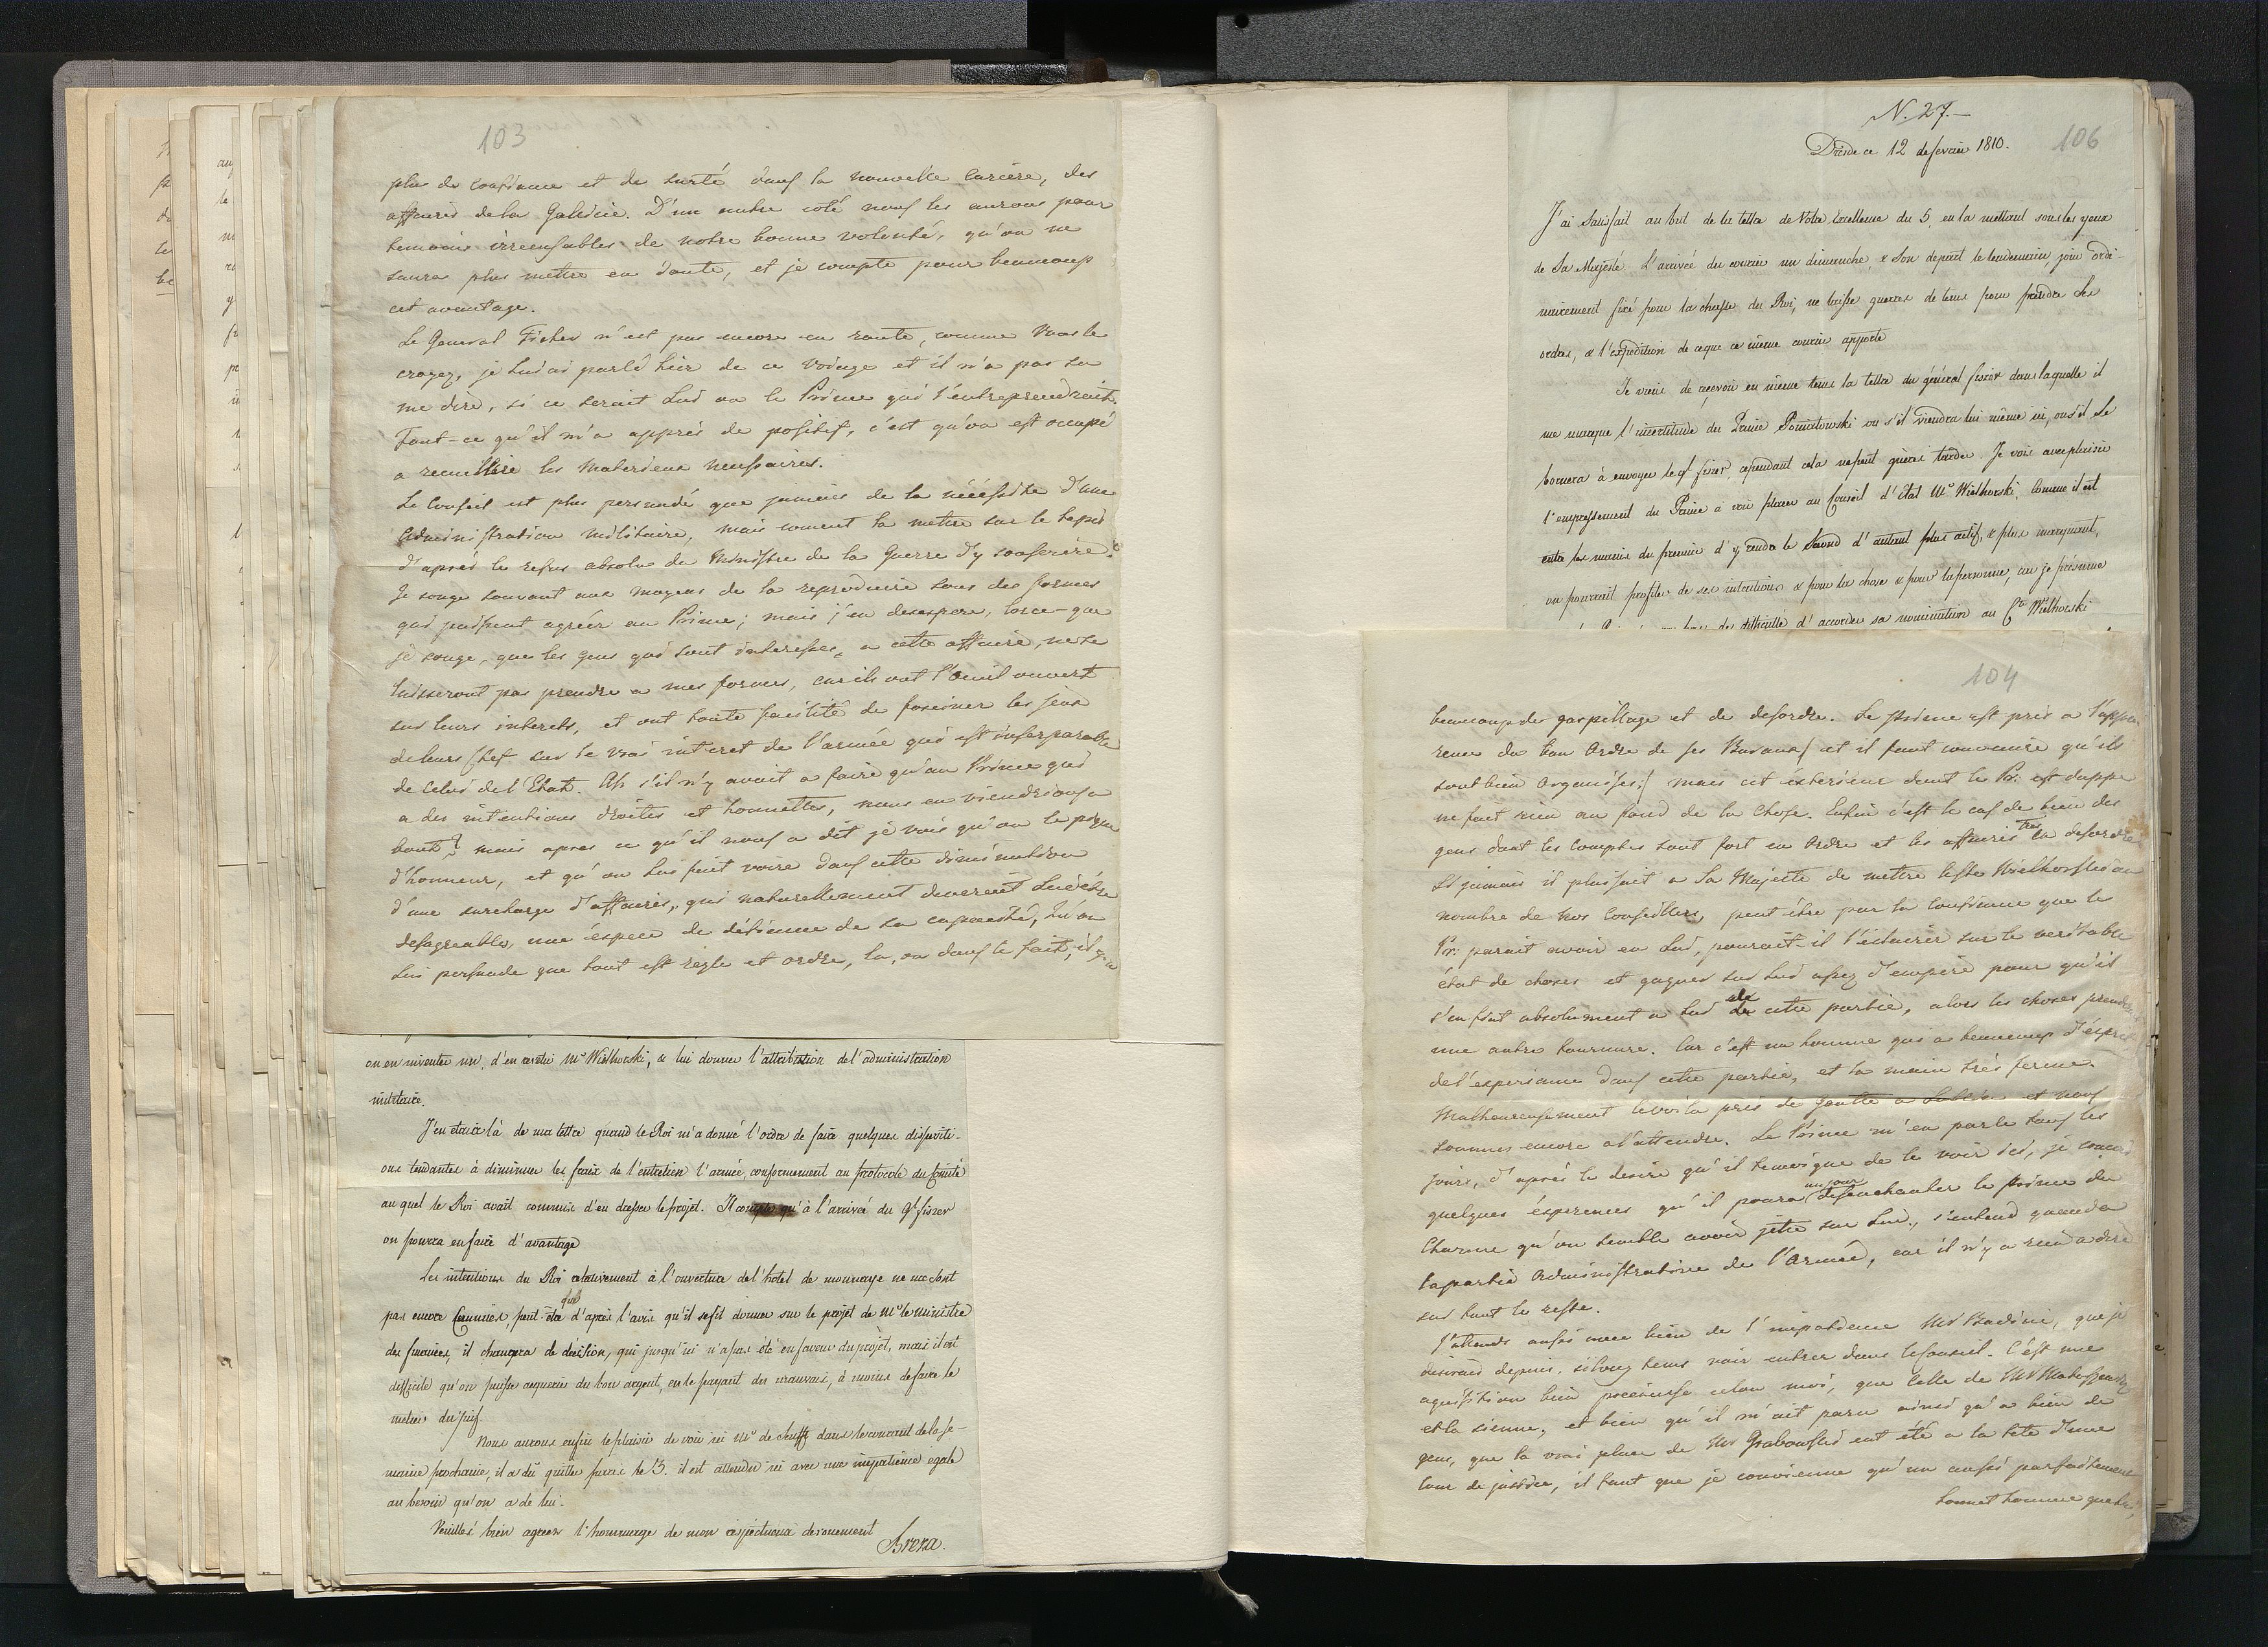 103
plus de confiance et de sureté dans la nouvelle cariere, des
affaires de la Galicie. D'un autre coté nous les aurons pour
temoins irrecusables de notre bonne volonté, qu'on ne
saura plus mettre en doute, et je compte pour beaucoup
cet avantage.
Le General Ficher n'est pas encore en route, comme Vous le
croyez, je lui ai parlé hier de ce voiage et il n'a pas su
me dire, si ce serait lui ou le Prince qui l'entreprendrait.
Tout-ce qu'il m'a appris de positif, c'est qu'on est occupé
a recueillire les materieux necessaires.
Le Conseil est plus persuadé que jamais de la nécéssité d'une
Administration militaire, mais coment la mettre sur le tapis
d'aprés le refus absolu du Ministre de la Guerre d'y souscrire?
Je songe souvant aux moyens de la reproduire sous des formes
qui puissent agréér au Prince; mais j'en desespere, lorce-que
je songe, que les gens qui sont interesses a cette affaire, ne se
laisseront pas prendre a mes formes, car ils ont l'oeuil ouvert
sur leurs interets, et ont toute facilité de fasciner les yeux
de leurs Chef sur le vrai interet de l'armée qui est inseparable
de celui de l'Etat. Ah s'il n'y avait a faire qu'au Prince qui
a des intentions droites et honnettes, nous en viendrions a
bout? mais apres ce qu'il nous a dit je vois qu'on le pique
d'honneur, et qu'on lui fait voire dans cette diminution
d'une surcharge d'affaires, qui naturellement deverait lui être
desagreable, une éspece de défience de sa capacité, qu'on
lui persuade que tout est regle et ordre, la, ou dans le fait, il y a
on en inventer un, d'en revetir Mr Wielhorski, & lui donner l'attribution de l'administration
militaire.
J'en etais là de ma lettre quand le Roi m'a donné l'ordre de faire quelques dispositi-
ons tendantes à diminuer les fraix de l'entretien l'armée, conformement au protocole du Comité
au quel le Roi avait commis d'en dresser le projet. Il compte qu'à l'arrivée du Gl fiszer
on pourra en faire d'avantage
Les intentions du Roi relativement à l'ouverture de l'hotel de monnaye ne me sont
pas encore Connues, peut-être que d'après l'avis qu'il se fit donner sur le projet de Mr le ministre
des finances, il changera de décision, qui jusqu'ici n'a pas été en faveur du projet, mais il est
difficile qu'on puisse acquerir du bon argent, en le payant du mauvais, à moins de faire le
metier du juif.
Nous aurons enfin le plaisir de voir ici Mr de Senfft dans le courant de la se-
maine prochaine, il a dû quitter paris le 3. il est attendu ici avec une impatience egale
au besoin qu'on a de lui.
Veuillés bien agreer l'hommage de mon respectueux devouement
Breza.
N. 27.-
Dresde ce 12 de fevrier 1810.
106
J'ai Satisfait au but de la lettre de Votre Excellence du 5, en la mettant sous les yeux
de Sa Majesté. L'arrivée du courier un dimanche, & Son depart le lendemain, jour ordi-
nairement fixé pour la chasse du Roi, ne laisse gueres de tems pour prendre Ses
ordres, & l'expedition de ce que ce même courier apporte
Je viens de recevoir en même tems la lettre du général fiszer dans laquelle il
me marque l'incertitude du Prince Poniatowski ou s'il viendra lui même ici, ou s'il se
bornera à envoyer le Gl fiszer, cependant cela ne peut gueres tarder. Je vois avec plaisir
l'empressement du Prince à voir placer au Conseil d'état Mr Wielhorski, Comme il est
entre les mains du premier d'y rendre le Second d'autant plus actif, & plus marquant,
on pourrait profiter de ses intentions & pour la chose & pour la personne, car je présume
difficulté d'accorder sa nomination au Cte Wielhorski
104
beaucoup de gaspillage et de desordre. Le prince est pris a l'appa
rence du bon Ordre de ses Bureaux / et il faut convenire qu'ils
sont bien organisés / mais cet éxterieur dont le Pr: est duppe
ne fait rien au fond de la chose. Enfin c'est le cas de bien des
gens dont les comptes sont fort en ordre et les affaires tres en desordre
Si jamais il plaisait a Sa Majesté de mettre le Cte Wielhorski au
nombre de nos Conseillers, peut être par la confience que le
Pr: parait avoir en lui, pourait-il l'éclairer sur le veritable
état de choses et gagner sur lui assez d'empire pour qu'il
s'en fint absolument a lui de cette partie, alors les choses prendr
une autre tournure. Car c'est un homme qui a beaucoup d'ésprit
de l'experience dans cette partie, et la main trés ferme.
Malheureusement le voila pris de goutte a et nous
sommes encore a l'attendre. Le Prince m'en parle tous les
jours, d'aprés le desire qu'il temoigne de le voir ici, je concois
quelques ésperences qu'il poura un jour desenchanter le prince du
Charme qu'on semble avoir jetté sur lui, s'entend quand a
la partie administrative de l'Armée, car il n'y a rien a dire
sur tout le reste.
J'attends aussi avec bien de l'impatience Mr Badini, que je
desirais depuis si long tems voir entrer dans le Conseil. C'est une
aquisition bien precieuse selon moi, que celle de Mr Matuszewitz
et la sienne, et bien qu'il m'ait paru ainsi qu'a bien de
gens, que la vrai place de Mr Grabowski eut été a la tete d'une
cour de justice, il faut que je convienne qu'un aussi parfaitement
honnet homme que lui,